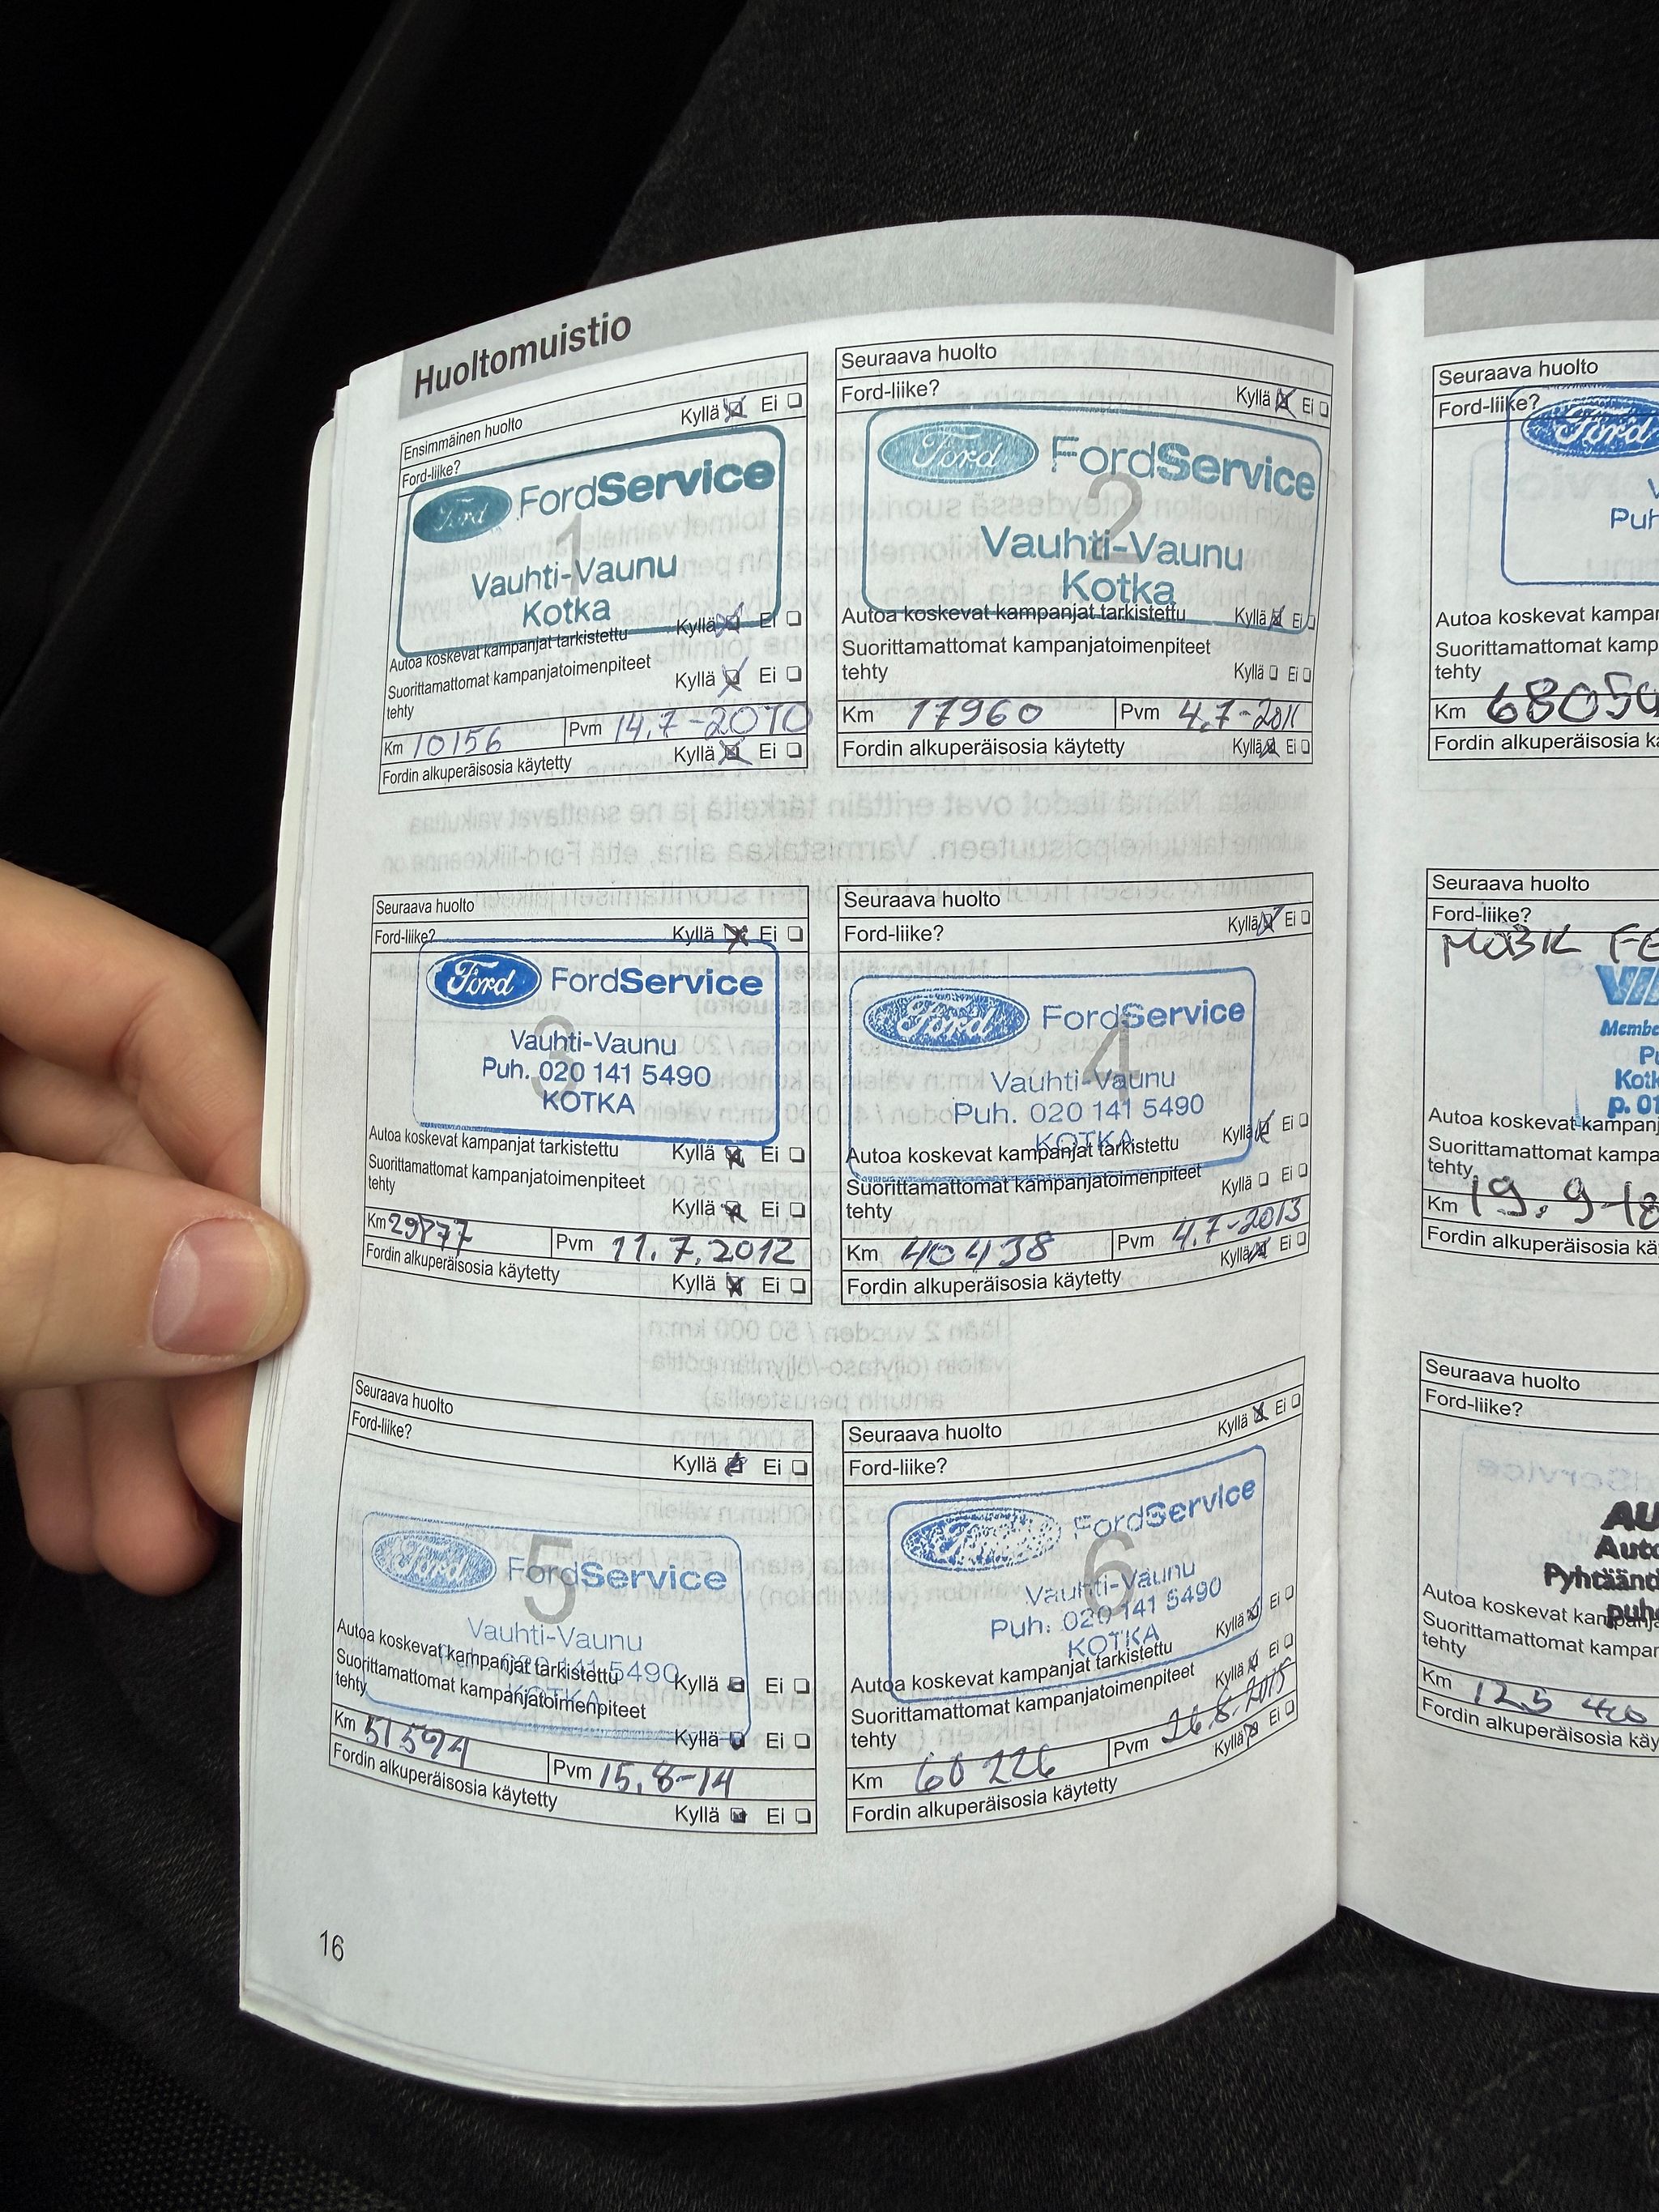 Huoltomuistio
Ensimmäinen huolto
Ford-liike? Kyllä Ei
Ford FordService
1
Vauhti-Vaunu
Kotka
Autoa koskevat kampanjat tarkistettu Kyllä Ei
Suorittamattomat kampanjatoimenpiteet
tehty Kyllä Ei
Km 10156 Pvm 14.7-2010
Fordin alkuperäisosia käytetty Kyllä Ei
Seuraava huolto
Ford-liike? Kyllä Ei
Ford FordService
2
Vauhti-Vaunu
Kotka
Autoa koskevat kampanjat tarkistettu Kyllä Ei
Suorittamattomat kampanjatoimenpiteet
tehty Kyllä Ei
Km 17960 Pvm 4.7-2011
Fordin alkuperäisosia käytetty Kyllä Ei
Seuraava huolto
Ford-liike? Kyllä Ei
Ford FordService
3
Vauhti-Vaunu
Puh. 020 141 5490
KOTKA
Autoa koskevat kampanjat tarkistettu Kyllä Ei
Suorittamattomat kampanjatoimenpiteet
tehty Kyllä Ei
Km Pvm 11.7.2012
Fordin alkuperäisosia käytetty Kyllä Ei
Seuraava huolto
Ford-liike? Kyllä Ei
Ford FordService
4
Vauhti-Vaunu
Puh. 020 141 5490
KOTKA
Autoa koskevat kampanjat tarkistettu Kyllä Ei
Suorittamattomat kampanjatoimenpiteet
tehty Kyllä Ei
Km 40438 Pvm 4.7-2013
Fordin alkuperäisosia käytetty Kyllä Ei
Seuraava huolto
Ford-liike? Kyllä Ei
Ford FordService
5
Vauhti-Vaunu
Puh. 020 141 5490
KOTKA
Autoa koskevat kampanjat tarkistettu Kyllä Ei
Suorittamattomat kampanjatoimenpiteet
tehty Kyllä Ei
Km Pvm 15.8-14
Fordin alkuperäisosia käytetty Kyllä Ei
Seuraava huolto
Ford-liike? Kyllä Ei
Ford FordService
6
Vauhti-Vaunu
Puh. 020 141 5490
KOTKA
Autoa koskevat kampanjat tarkistettu Kyllä Ei
Suorittamattomat kampanjatoimenpiteet
tehty Kyllä Ei
Km 60226 Pvm 26.8.2015
Fordin alkuperäisosia käytetty Kyllä Ei
16
Seuraava huolto
Ford-liike?
Ford
V
Puh
Autoa koskevat kampa
Suorittamattomat kamp
tehty
Km 68050
Fordin alkuperäisosia kä
Seuraava huolto
Ford-liike?
Membe
Pu
Kotk
p. 01
Autoa koskevat kampanj
Suorittamattomat kampa
tehty
Km 19.9-18
Fordin alkuperäisosia kä
Seuraava huolto
Ford-liike?
AU
Auto
Pyhtäänt
puh
Autoa koskevat kampanja
Suorittamattomat kampan
tehty
Km
Fordin alkuperäisosia käy